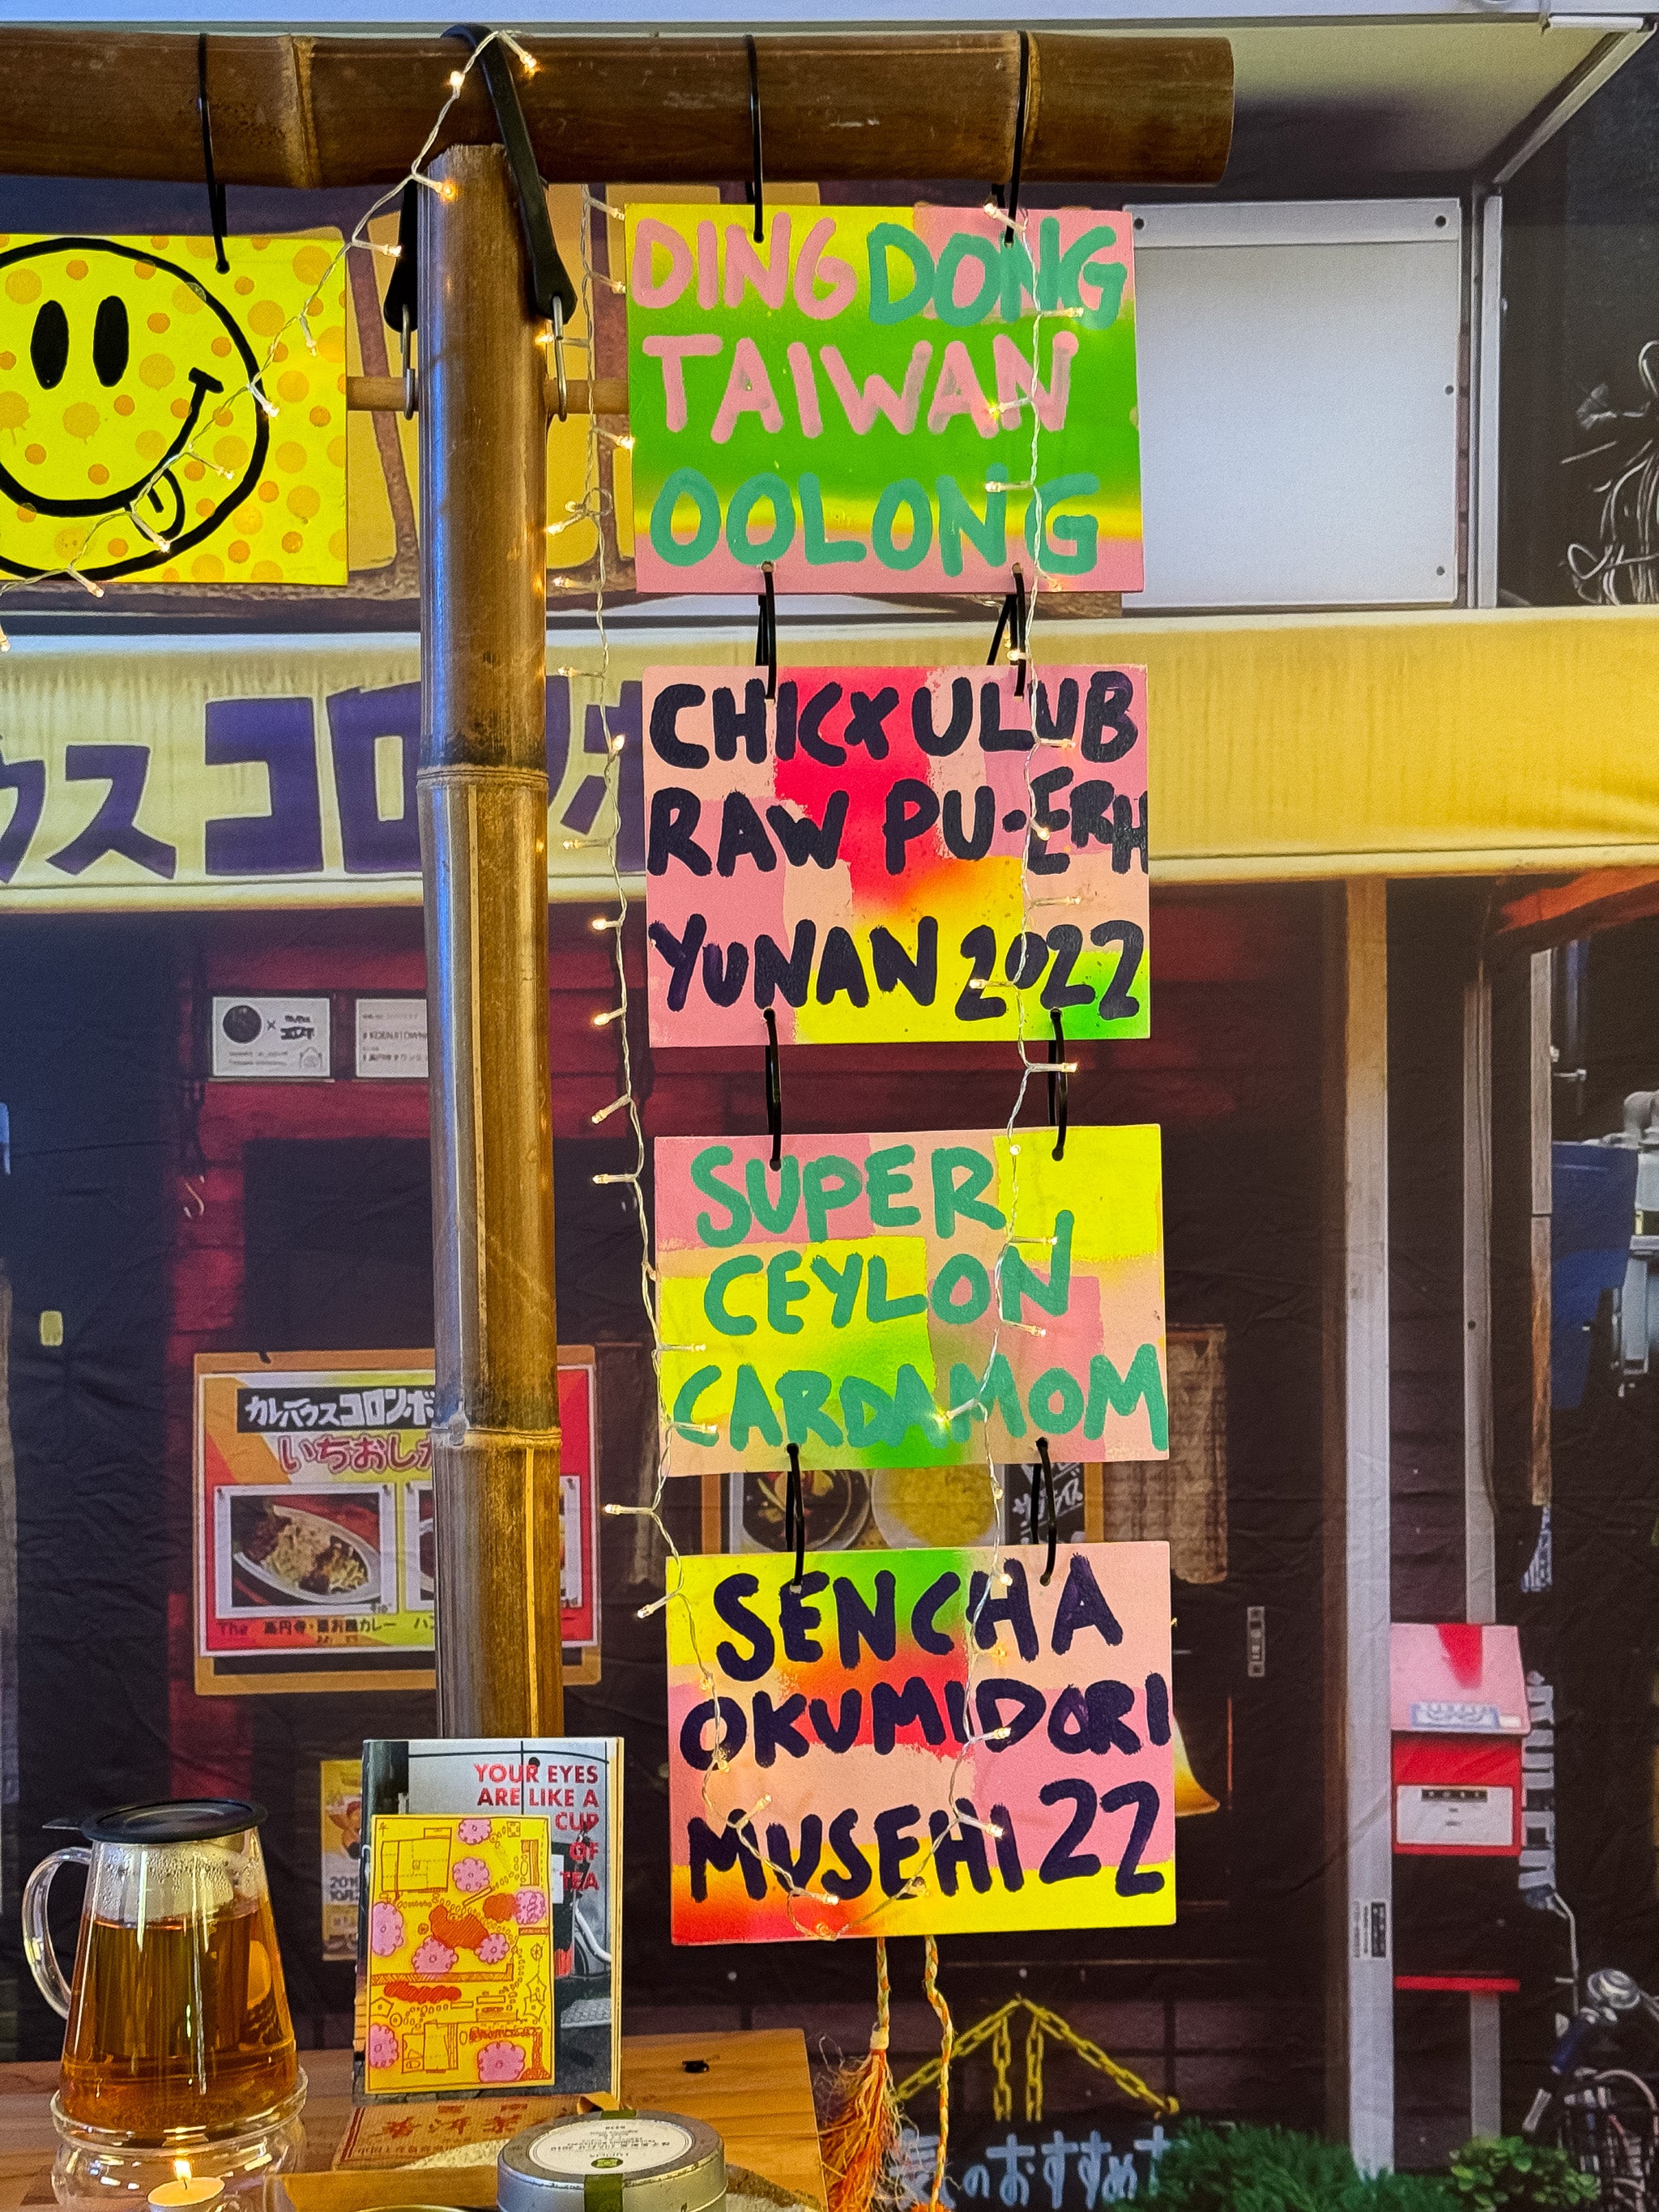 DING DONG
TAIWAN
OOLONG
ウスコロ
CHICXULUB
RAW PU-ERH
YUNAN 2022
SUPER
CEYLON
CARDAMOM
カレーハウスコロンボ
いちおし
The 高円寺・薬お膳カレー
SENCHA
OKUMIDORI
MUSEHI 22
YOUR EYES
ARE LIKE A
CUP
OF
TEA
のおすすめ